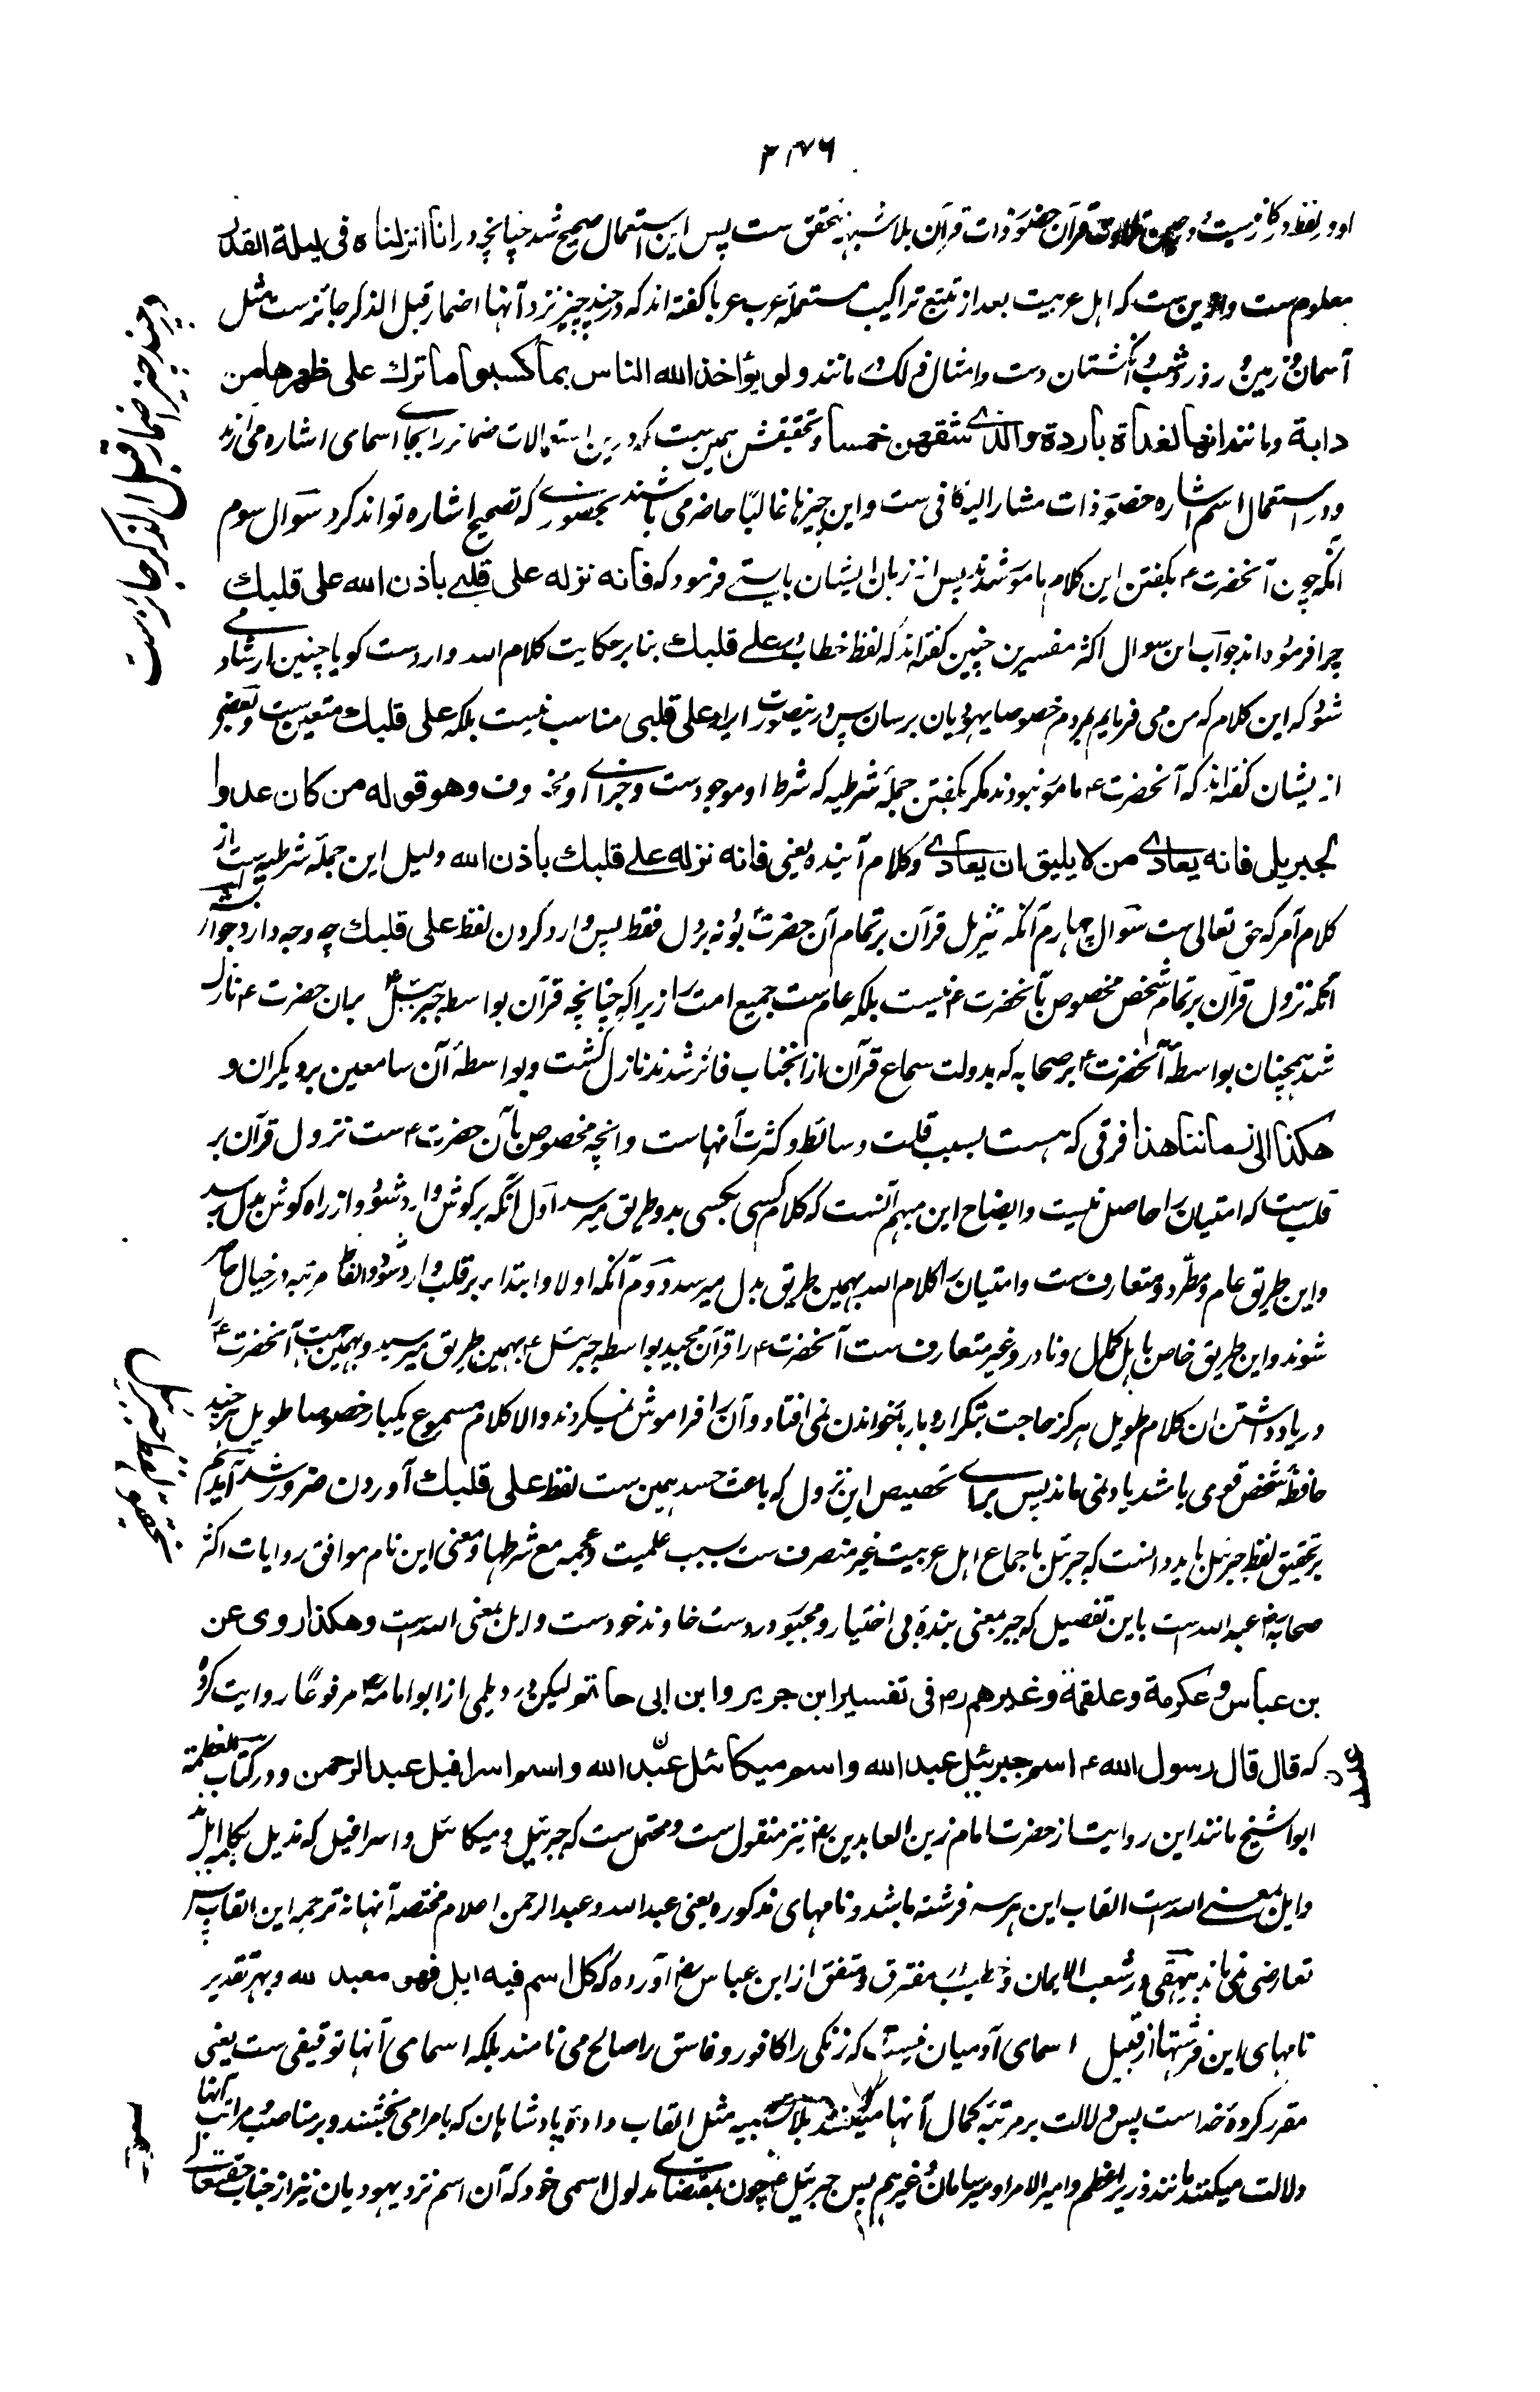 ۳۷۶
او در لفظ در کار نیست و در حین تلاوت قرآن حضور ذات قرآن بلا شبهه متحقق ست پس این استعمال صحیح شد چنانچه در انا انزلناه فی لیلة القدر
معلوم ست و ازین ست که اهل عربیت بعد از تتبع تراکیب مستعملهٔ عرب عربا گفته اند که در چند چیز نزد آنها اضمار قبل الذکر جائز ست مثل
آسمان و زمین و روز و شب و انگشتان دست و امثال ذلک مانند و لو یؤاخذ الله الناس بما کسبوا ما ترک علی ظهرها من
دابة و مانند انها لغداة باردة والذی شقهن خمسا و تحقیقش همین ست که درین استعمالات ضمائر را بجای اسمای اشاره می آرند
و در استعمال اسم اشاره حضور ذات مشار الیه کافی ست و این چیزها غالبًا حاضر می باشند بحضوری که تصحیح اشاره تواند کرد سوال سوم
آنکه چون آنحضرت ؑ بگفتن این کلام مامور شدند پس از زبان ایشان بایستی فرمود که فانه نزله علی قلبی باذن الله علی قلبک
چرا فرموده اند جواب این سوال اکثر مفسرین چنین گفته اند که لفظ خطاب در علی قلبک بنا بر حکایت کلام الله وارد ست گویا چنین ارشاد می
شود که این کلام که من می فرمایم بمردم خصوصا یهودیان برسان پس درینصورت ایراد علی قلبی مناسب نیست بلکه علی قلبک متعین ست و بعضی
از یشان گفته اند که آنحضرت ؑ مامور نبودند مگر بگفتن جملهٔ شرطیه که شرط او موجود ست و جزای او محذوف و هو قوله من کان عدوا
لجبریل فانه یعادی من لا یلیق ان یعادی و کلام آینده یعنی فانه نزله علی قلبک باذن الله دلیل این جملهٔ شرطیه ست از
کلام آمر که حق تعالی ست سوال چهارم آنکه تنزیل قرآن بر تمام آن حضرت ؑ بود نه بر دل فقط پس وارد کردن لفظ علی قلبک چه وجه دارد جوابش
آنکه نزول قرآن بر تمام شخص مخصوص بآنحضرت ؑ نیست بلکه عام ست جمیع امت را زیرا که چنانچه قرآن بواسطه جبرئیل ؑ بران حضرت ؑ نازل
شد همچنان بواسطهٔ آنحضرت ؑ بر صحابه که بدولت سماع قرآن از آنجناب فائز شدند نازل گشت و بواسطهٔ آن سامعین بر دیگران و
هکذا الی زماننا هذا فرقی که هست بسبب قلت وسائط و کثرت آنهاست و انچه مخصوص بآن حضرت ؑ ست نزول قرآن بر
قلب ست که امتیان را حاصل نیست و ایضاح این مبهم آنست که کلام کسی بکسی بدو طریق میرسد اول آنکه بر گوش وارد شود و از راه گوش بدل رسد
و این طریق عام و مطرد و متعارف ست و امتیان را کلام الله بهمین طریق بدل میرسد دوم آنکه اولا و ابتداء بر قلب وارد شود و الفاظ مرتبه در خیال حاضر
شوند و این طریق خاص باهل کمال و نادر و غیر متعارف ست آنحضرت ؑ را قرآن مجید بواسطه جبرئیل ؑ بهمین طریق میرسید و بهمین جهت آنحضرت ؑ را
در یاد داشتن ان کلام طویل هرگز حاجت تکرار و بار بار خواندن نمی افتاد و آن را فراموش نمیکردند و الا کلام مسموع یکبار خصوصا طویل هر چند
حافظهٔ شخص قوی باشد یاد نمی ماند پس برای تخصیص این نزول که باعث حسد همین ست لفظ علی قلبک آوردن ضرور شد آمدیم
بر تحقیق لفظ جبرئیل باید دانست که جبرئیل باجماع اهل عربیت غیر منصرف ست بسبب علمیت و عجمه مع شرطها و معنی این نام موافق روایات اکثر
صحابه ؓ عبد الله ست باین تفصیل که جبر بمعنی بندهٔ بی اختیار و مجبور در دست خاوند خود ست و ایل بمعنی الله ست و هکذا روی عن
بن عباس و عکرمة و علقمة و غیرهم ؓ فی تفسیر ابن جریر و ابن ابی حاتم لیکن دیلمی از ابو امامه ؓ مرفوعًا روایت کرده
که قال قال رسول الله ؑ اسم جبرئیل عبد الله و اسم میکائیل عبید الله و اسم اسرافیل عبد الرحمن و در کتاب العظمة
ابو الشیخ مانند این روایت از حضرت امام زین العابدین ؓ نیز منقول ست و محتمل ست که جبرئیل و میکائیل و اسرافیل که مذیل بکلمه ایل اند
و ایل بمعنی الله ست القاب این هر سه فرشته باشد و نامهای مذکوره یعنی عبد الله و عبد الرحمن اعلام مختصه آنها نه ترجمه این القاب پس
تعارضی نمی ماند بیهقی در شعب الایمان و خطیب در مفترق و متفق از ابن عباس ؓ آورده که کل اسم فیه ایل فهو معبد لله و بهر تقدیر
نامهای این فرشتها از قبیل اسمای آدمیان نیست که زنگی را کافور و فاسق را صالح می نامند بلکه اسمای آنها توقیفی ست یعنی
مقرر کردهٔ خداست پس دلالت بر مرتبهٔ کمال آنها میکنند بلاتشبیه مثل القاب دادهٔ پادشاهان که بامرا می بخشند و بر مناصب و مراتب آنها
دلالت میکنند مانند وزیر اعظم و امیر الامرا و میر سامان و غیرهم پس جبرئیل ؑ چون بمقتضای مدلول اسمی خود که آن اسم نزد یهودیان نیز از جناب حقتعالی
در چند چیز اضمار قبل الذکر جائز ست
تحقیق لفظ جبرئیل